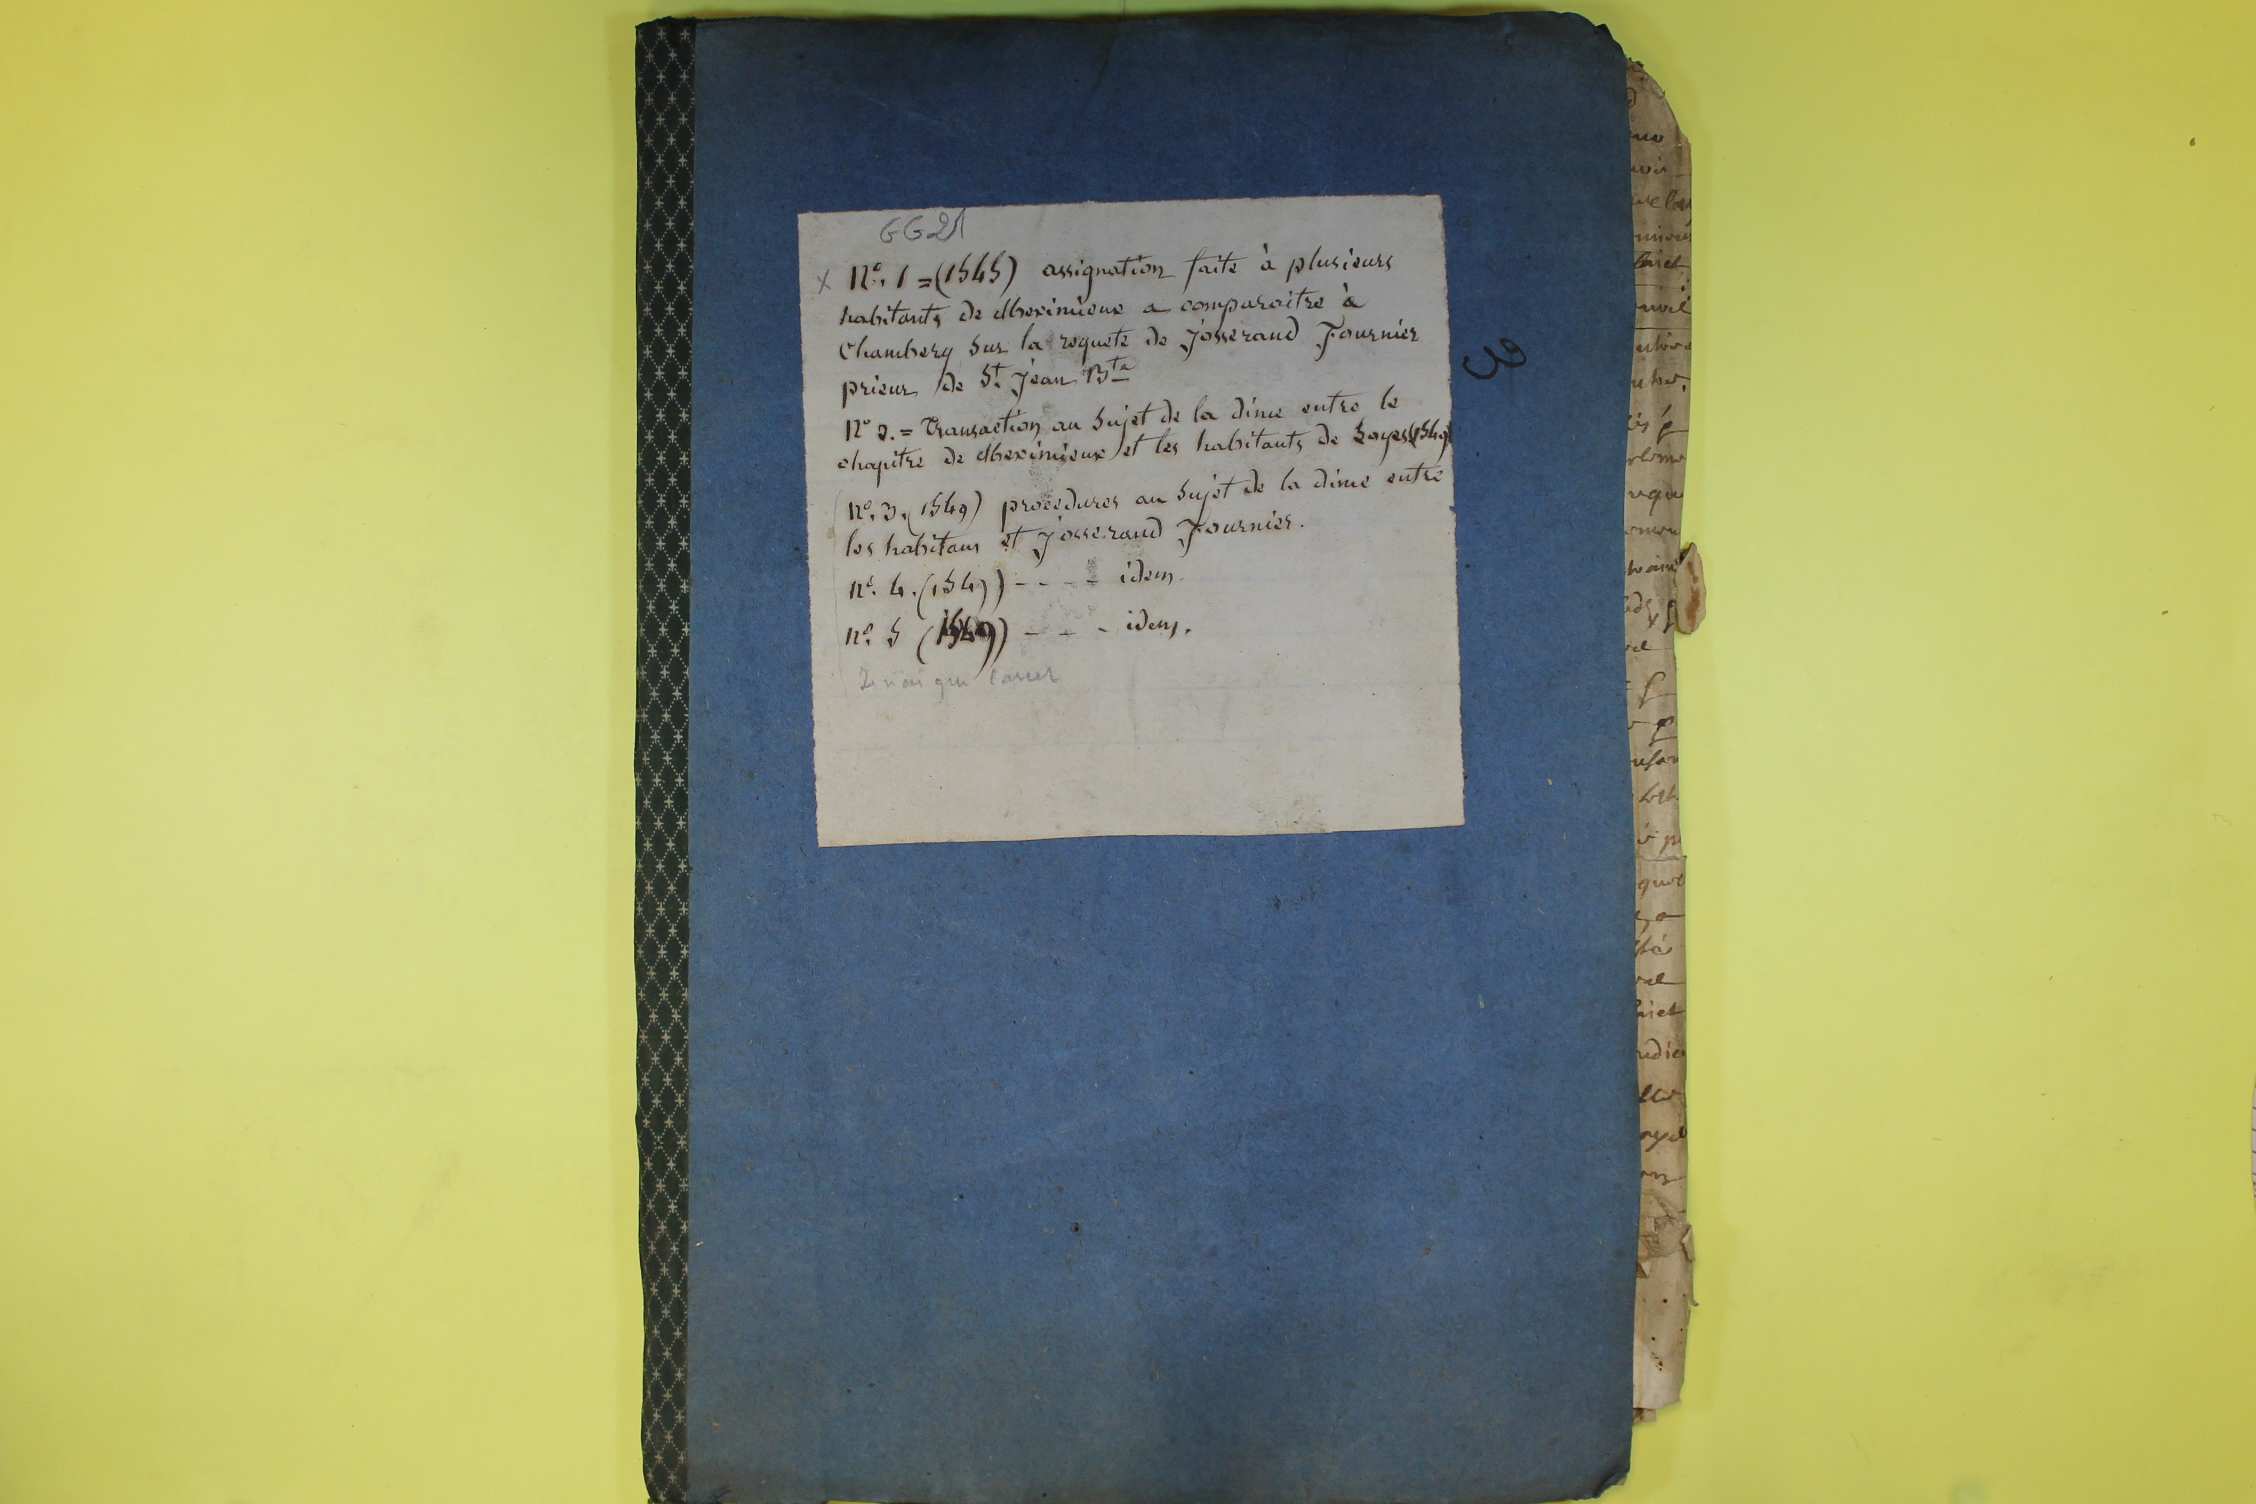 GG21
x N°. 1 = (1545) assignation faite à plusieurs
habitants de Meximieux a comparoitre à
Chambery sur la requete de Josserand Fournier
prieur de St. Jean Bte
N° 2. = Transaction au sujet de la dime entre le
chapitre de Meximieux et les habitants de Loyes (1549)
N°. 3. (1549) procedures au sujet de la dime entre
les habitans et Josserand Fournier.
N°. 4. (1549) - - - - idem.
N°. 5 (1549) - - - idem.
3